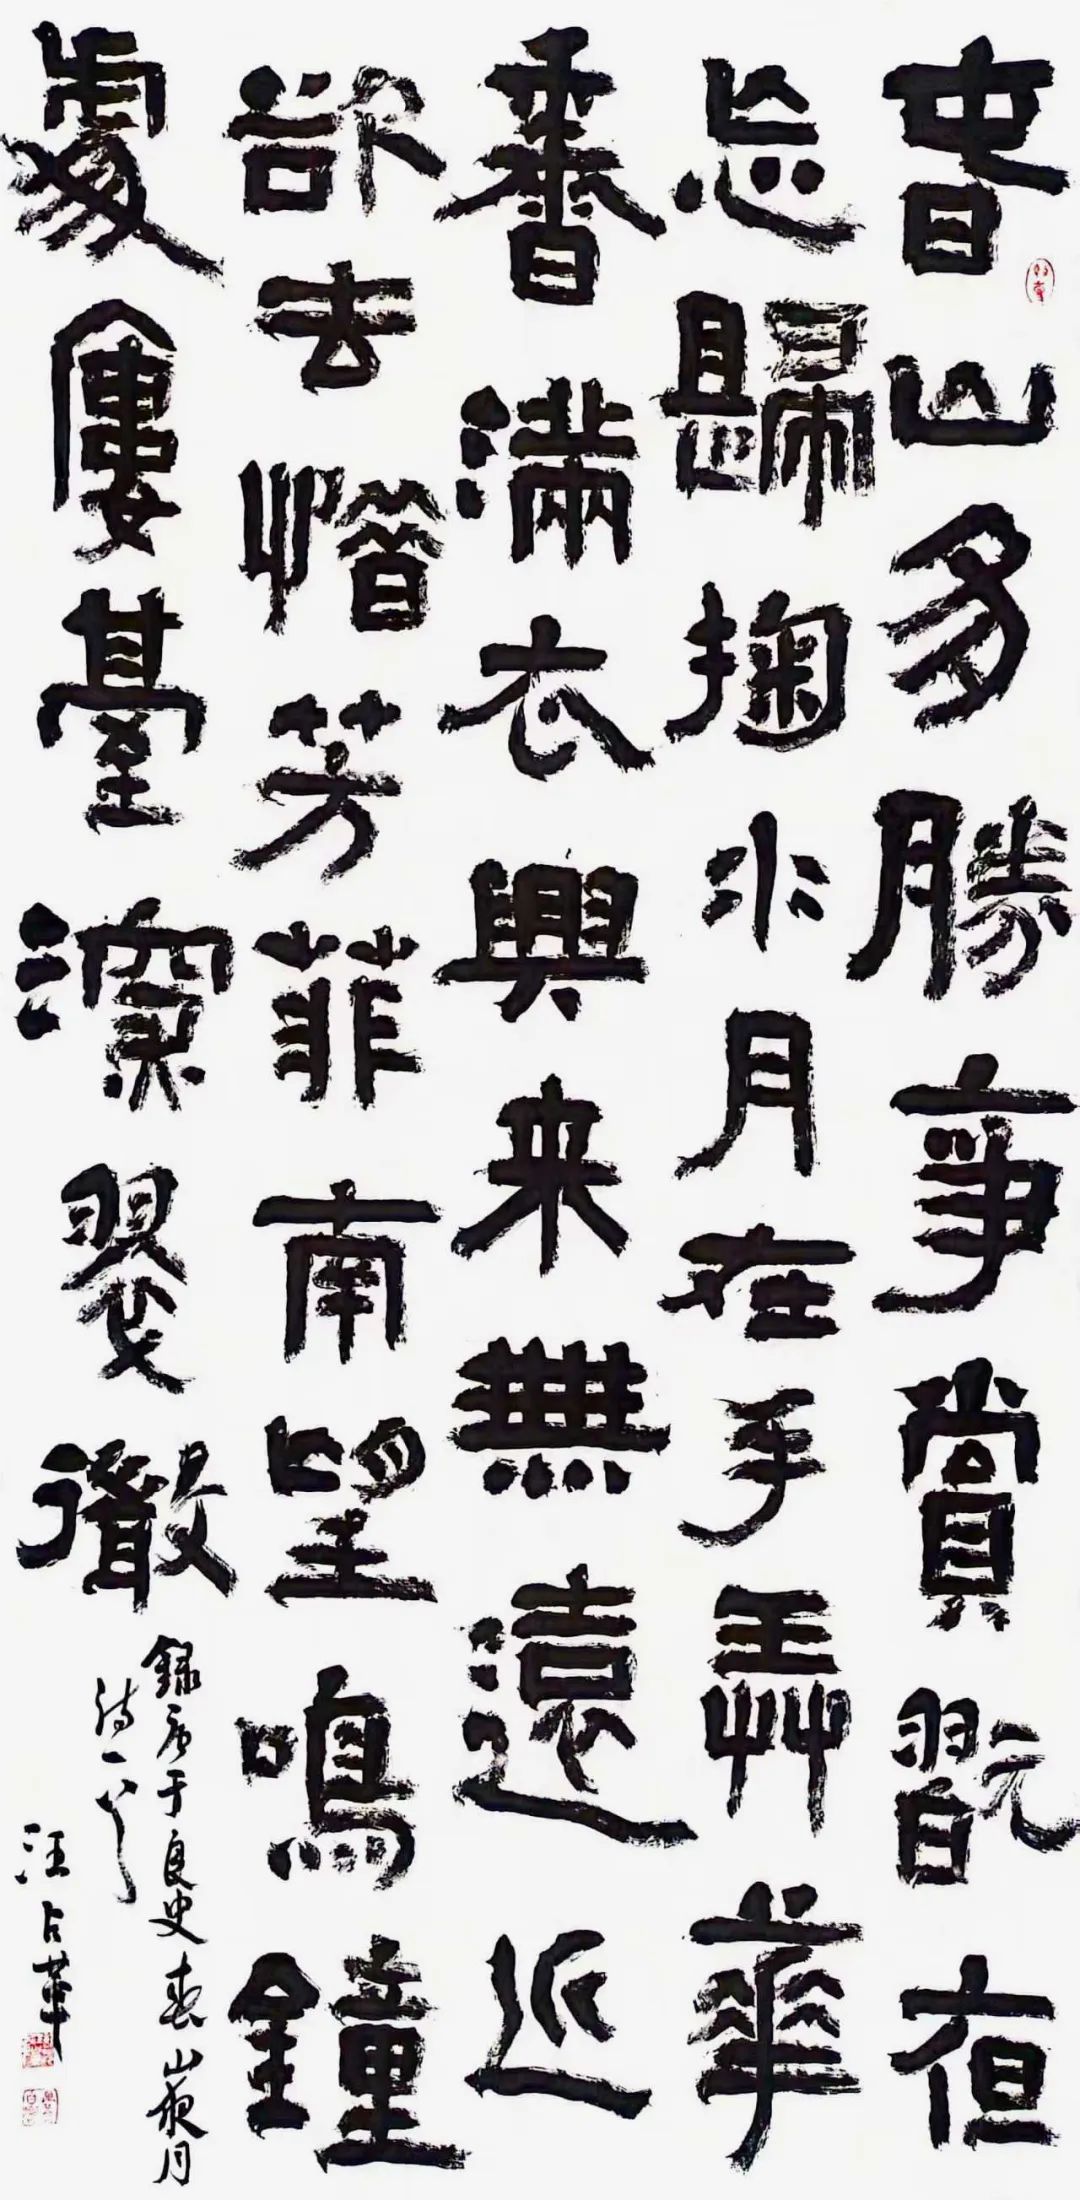 春山多勝事賞翫夜
忘歸掬水月在手弄華
香滿衣興来無遠近
欲去惜芳菲南望鳴鐘
處廔臺深翠微
錄唐于良史春山夜月
詩一首
汪占革